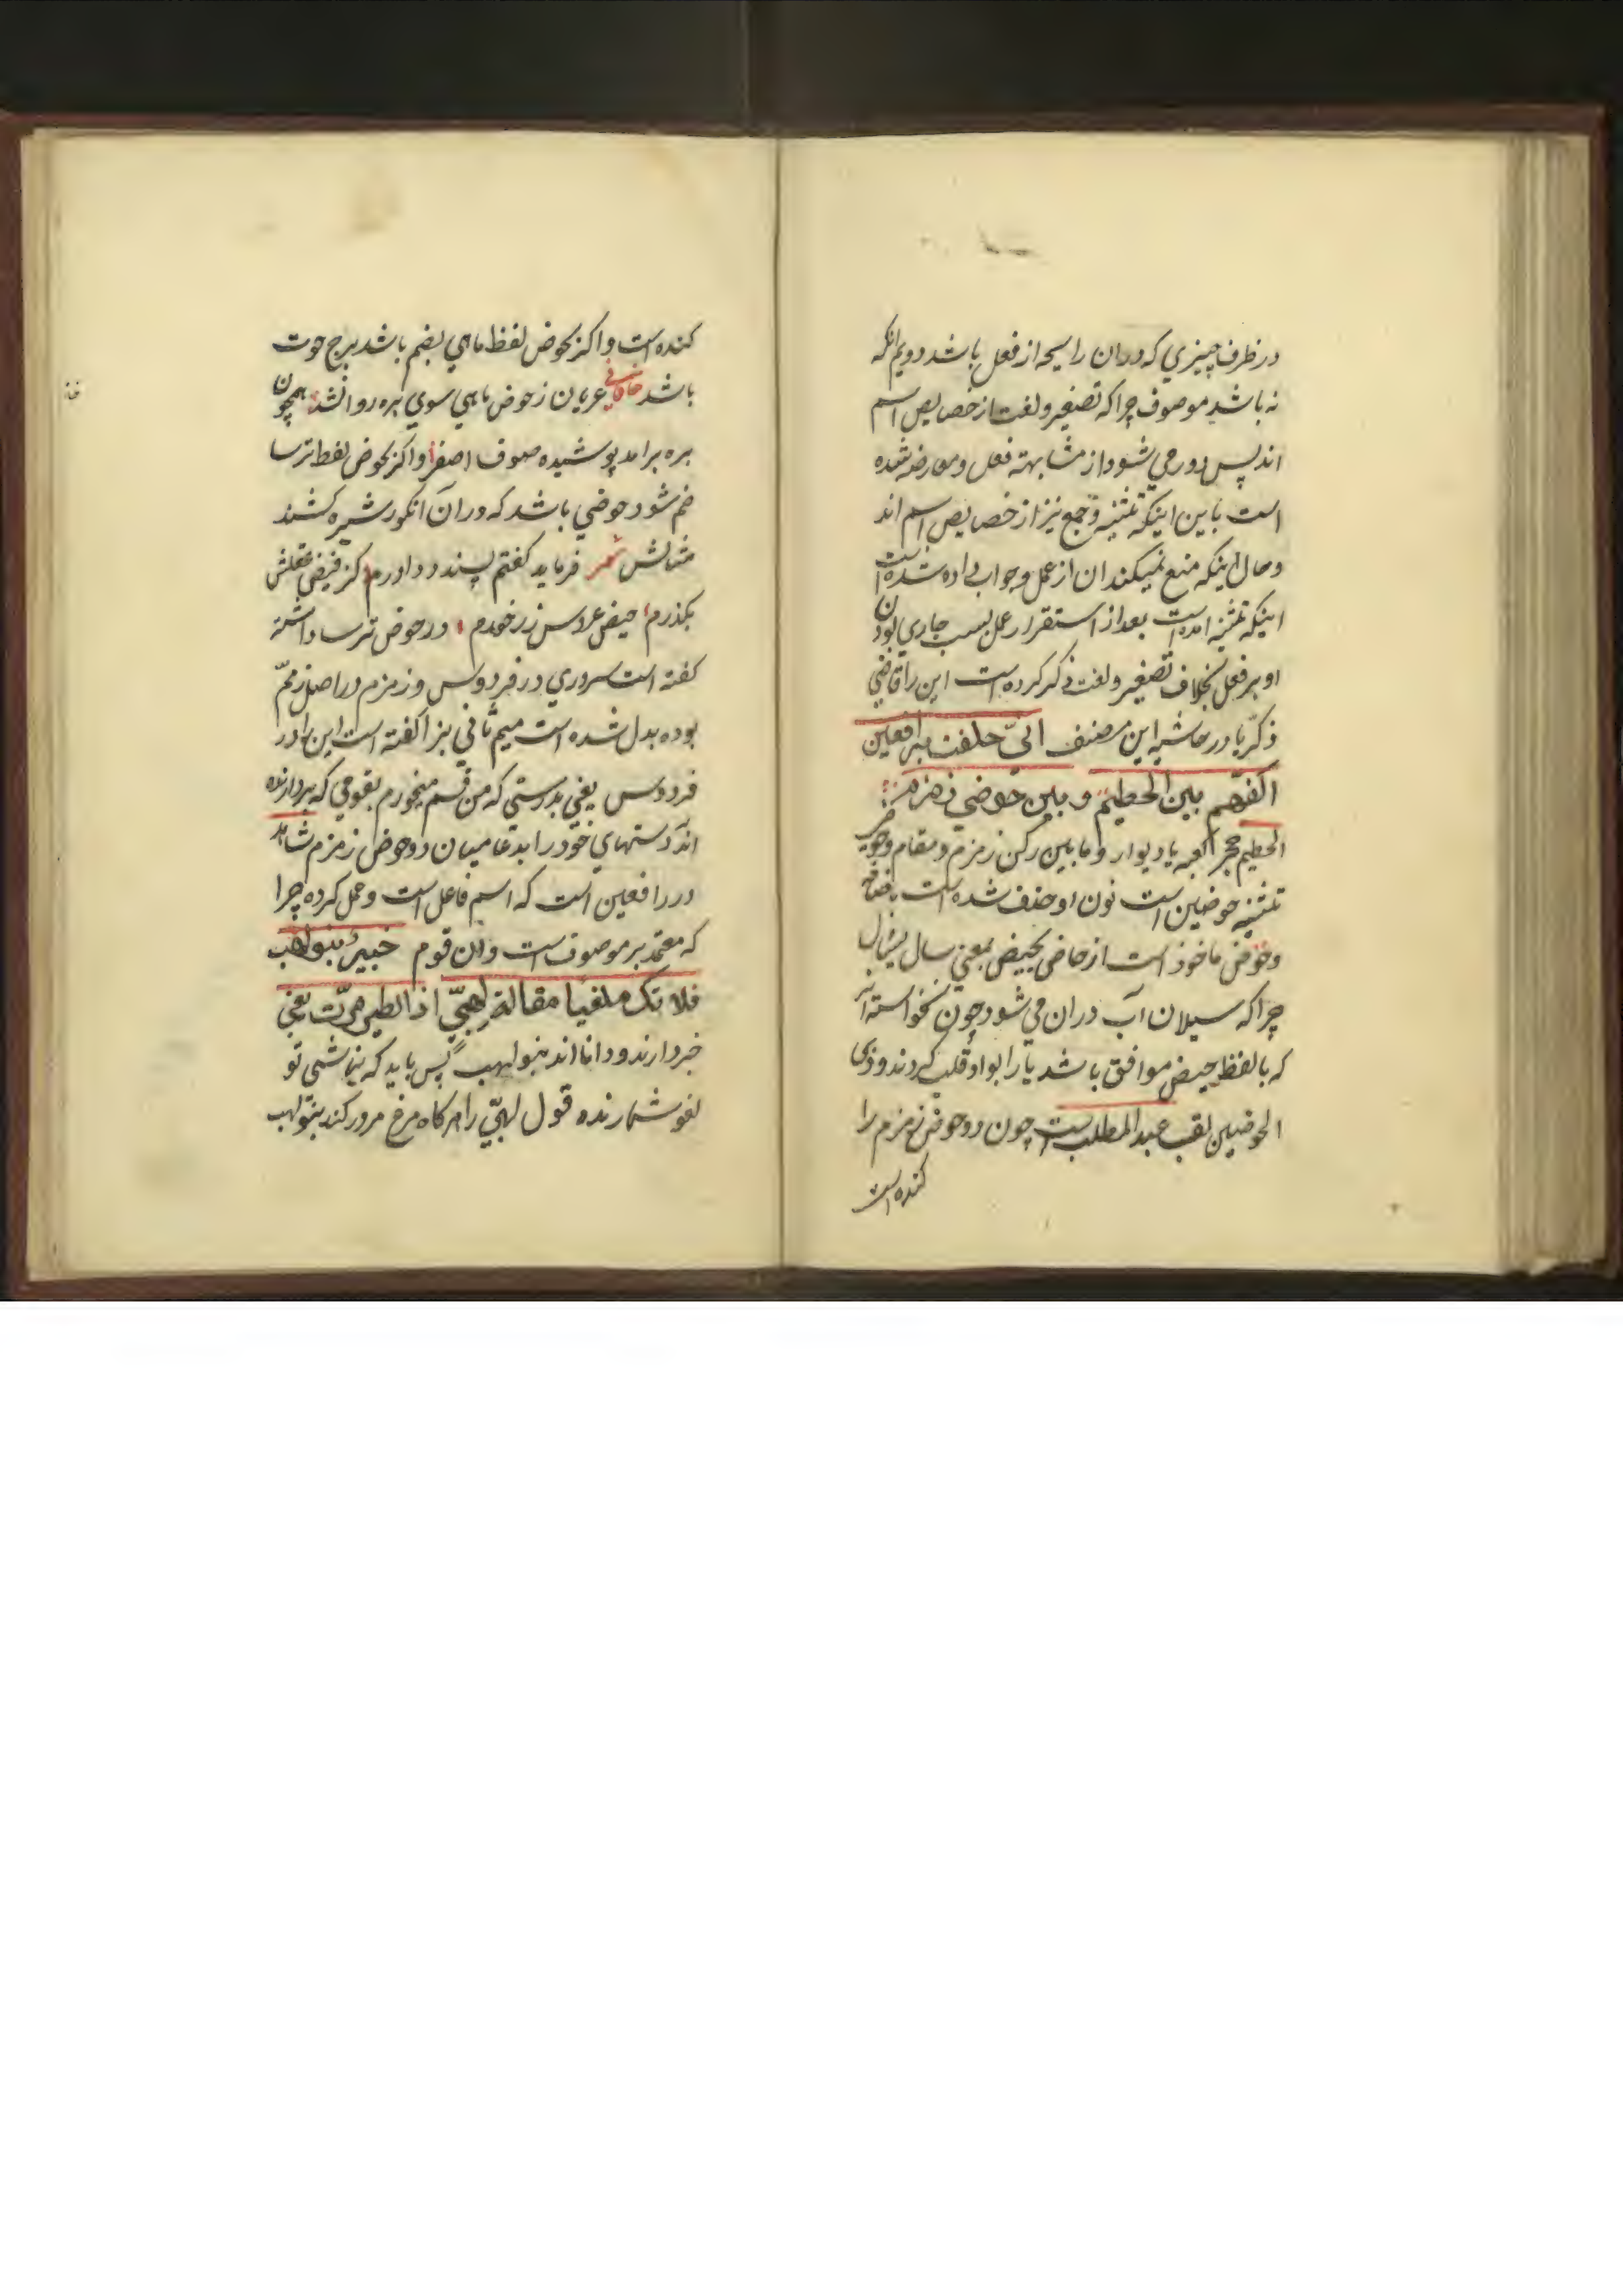 در ظرف چیزي که در ان رایحه از فعل باشد دویم انکه
نه باشد موصوف چرا که تصغیر و لغت از خصایص اسم
اند پس دور مي شود از مشابهته فعل و معارضه شده
است باین اینکه تثنیه و جمع نیز از خصایص اسم اند
و حال اینکه منع نمیکند ان از عمل و جواب داده شده است
اینکه تثنیه امده است بعد از استقرار عمل بسبب جاري بودن
او بر فعل بخلاف تصغیر و لغت ذکر کرده است این را قاضي
ذکریا در حاشیه این مصنف انيّ حلفت برافعین
اکفهم بین الحطیم و بین حوضي زمزم
الحطیم حجر کعبه یا دیوار و ما بین رکن زمزم و مقام و حوضي
تثنیه حوضین است نون او حذف شده است باضافه
و حوض ماخوذ است از حاض یحیض بمعني سال یسال
چرا که سیلان آب در ان مي شود چون نخواسته اند
که بالفظ حیض موافق باشد یا را بواو قلب کردند و ذي
الحوضین لقب عبد المطلب است چون دو حوض زمزم را
کنده است
کنده است و اکر بحوض لفظ ماهي بضم باشد برج حوت
باشد خاقاني عریان ز حوض ماهي سوي بره روانشد همچون
بره برامد پوشیده صوف اصفر و اکر بحوض لفظ ترسا
ضم شود حوضي باشد که در آن انکور شیره کشند
مثالش شعر فرماید کفتم پسند داورم کز فیض عقلش
بکذرم حیض عروس زر خورم در حوض ترسا داشته
کفته است سروري در فردوس و زمزم در اصل زمّم
بوده بدل شده است میم ثاني بزا کفته است این را در
فردوس یعني بدرستي که من قسم میخورم بقومي که بردارنده
اند دستهاي خود را بدعا میان دو حوض زمزم شاهد
در رافعین است که اسم فاعل است و عمل کرده چرا
که معتمد بر موصوف است و ان قوم خبیر بنو لهب
فلا تک ملغیا مقالة لهبيّ اذا الطیر مرّت یعني
خبر دارند و دانا اند بنو لهب پس باید که نباشي تو
لغو شمارنده قول لهبيّ را هر کاه مرغ مرور کند بنو لهب